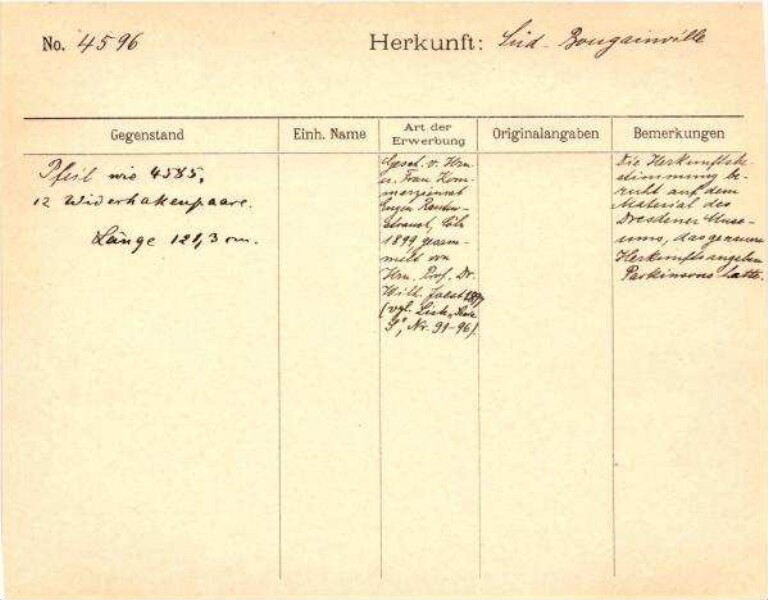 No. 4596
Herkunft: Süd-Bougainville
Gegenstand
Einh. Name
Art der Erwerbung
Originalangaben
Bemerkungen
Pfeil wie 4585,
12 Widerhakenpaare.
Länge 121,3 cm.
Gesch. v. Hrn
u. Frau Kom-
merzienrat
Eugen Rauten-
strauch, Cöln
1899, gesam-
melt von
Hrn. Prof. Dr.
Wilh. Joest 1897
(vgl. Liste
S", Nr. 91-96).
Die Herkunftsbe-
stimmung be-
ruht auf dem
Material des
Dresdener Muse-
ums, das genauere
Herkunftsangaben
Parkinsons hatte.